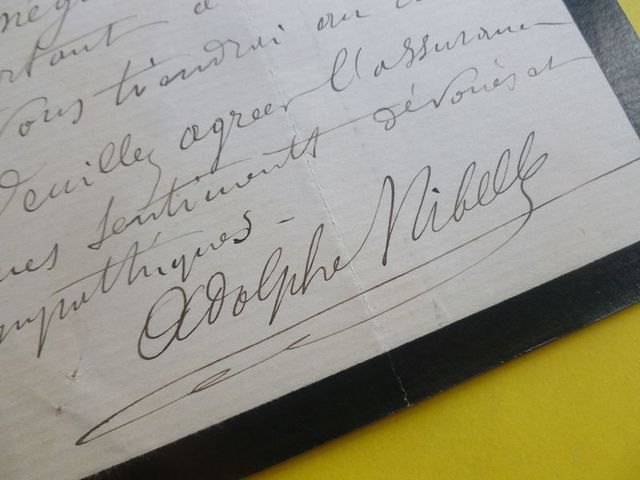 vous tiendrai au
Veuillez agreer l'assurance
mes sentiments dévoués et
sympathiques -
Adolphe Nibelle